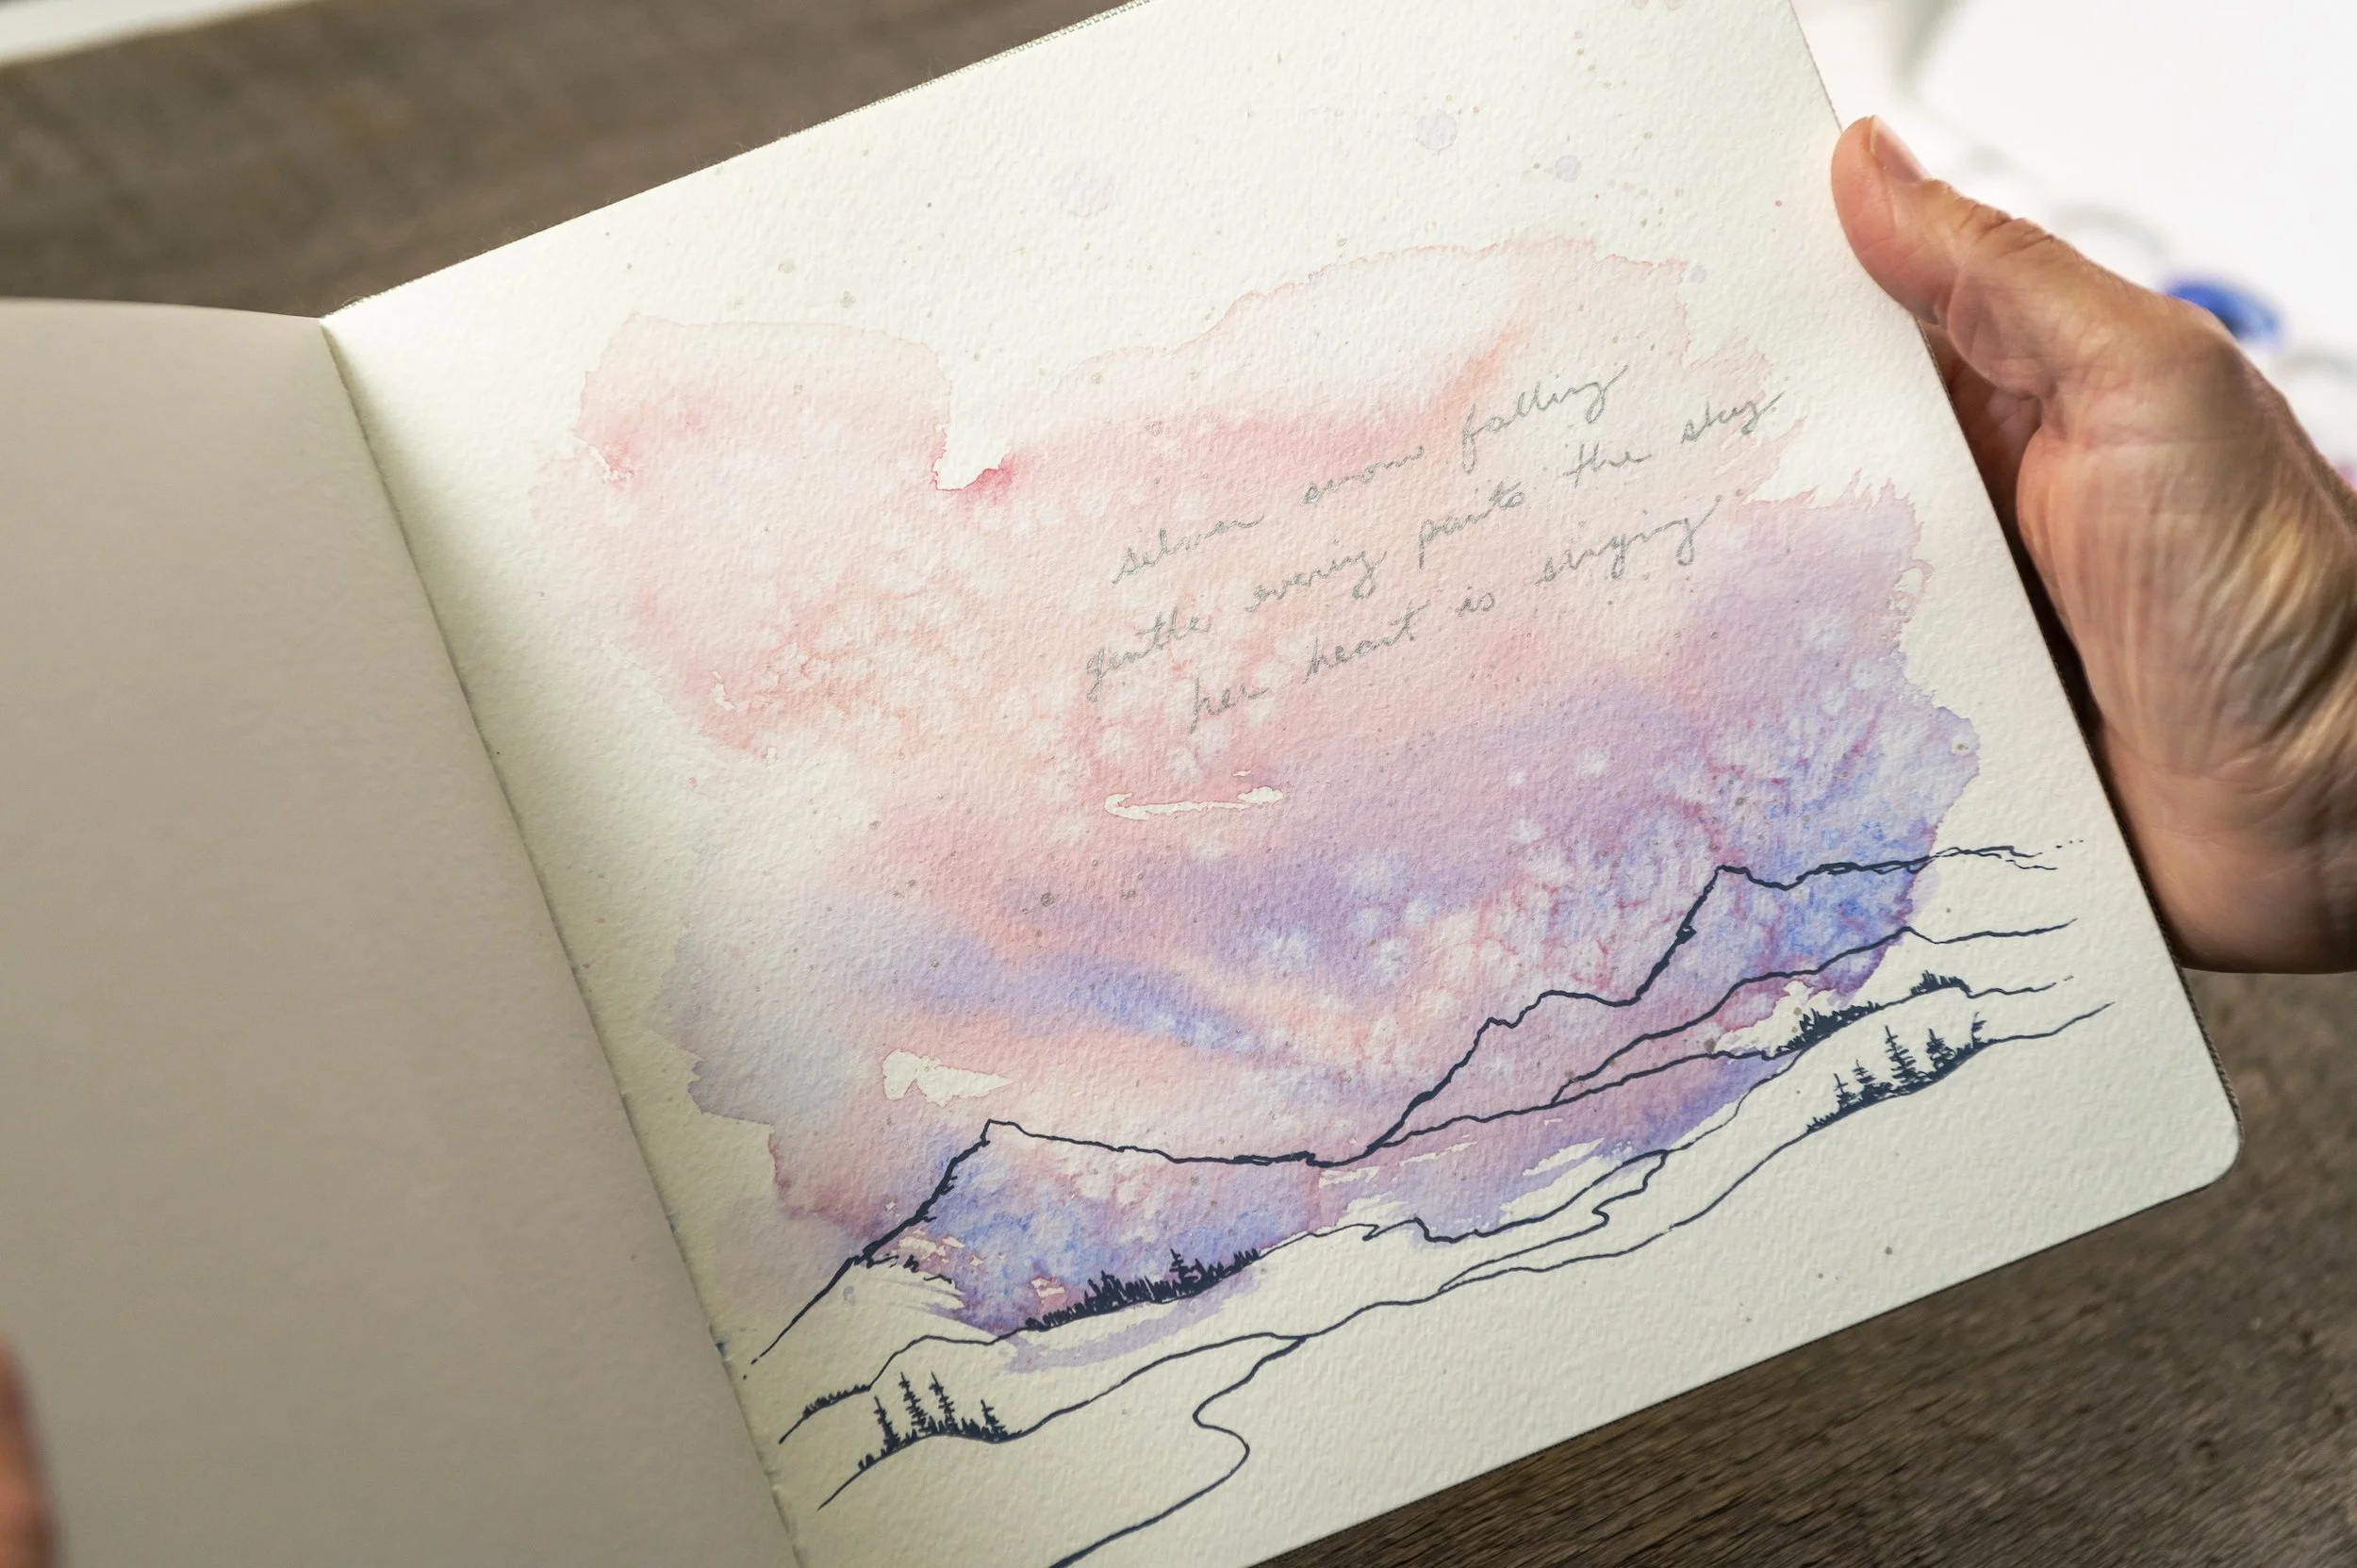 silver snow falling
gentle evening paints the sky
her heart is singing